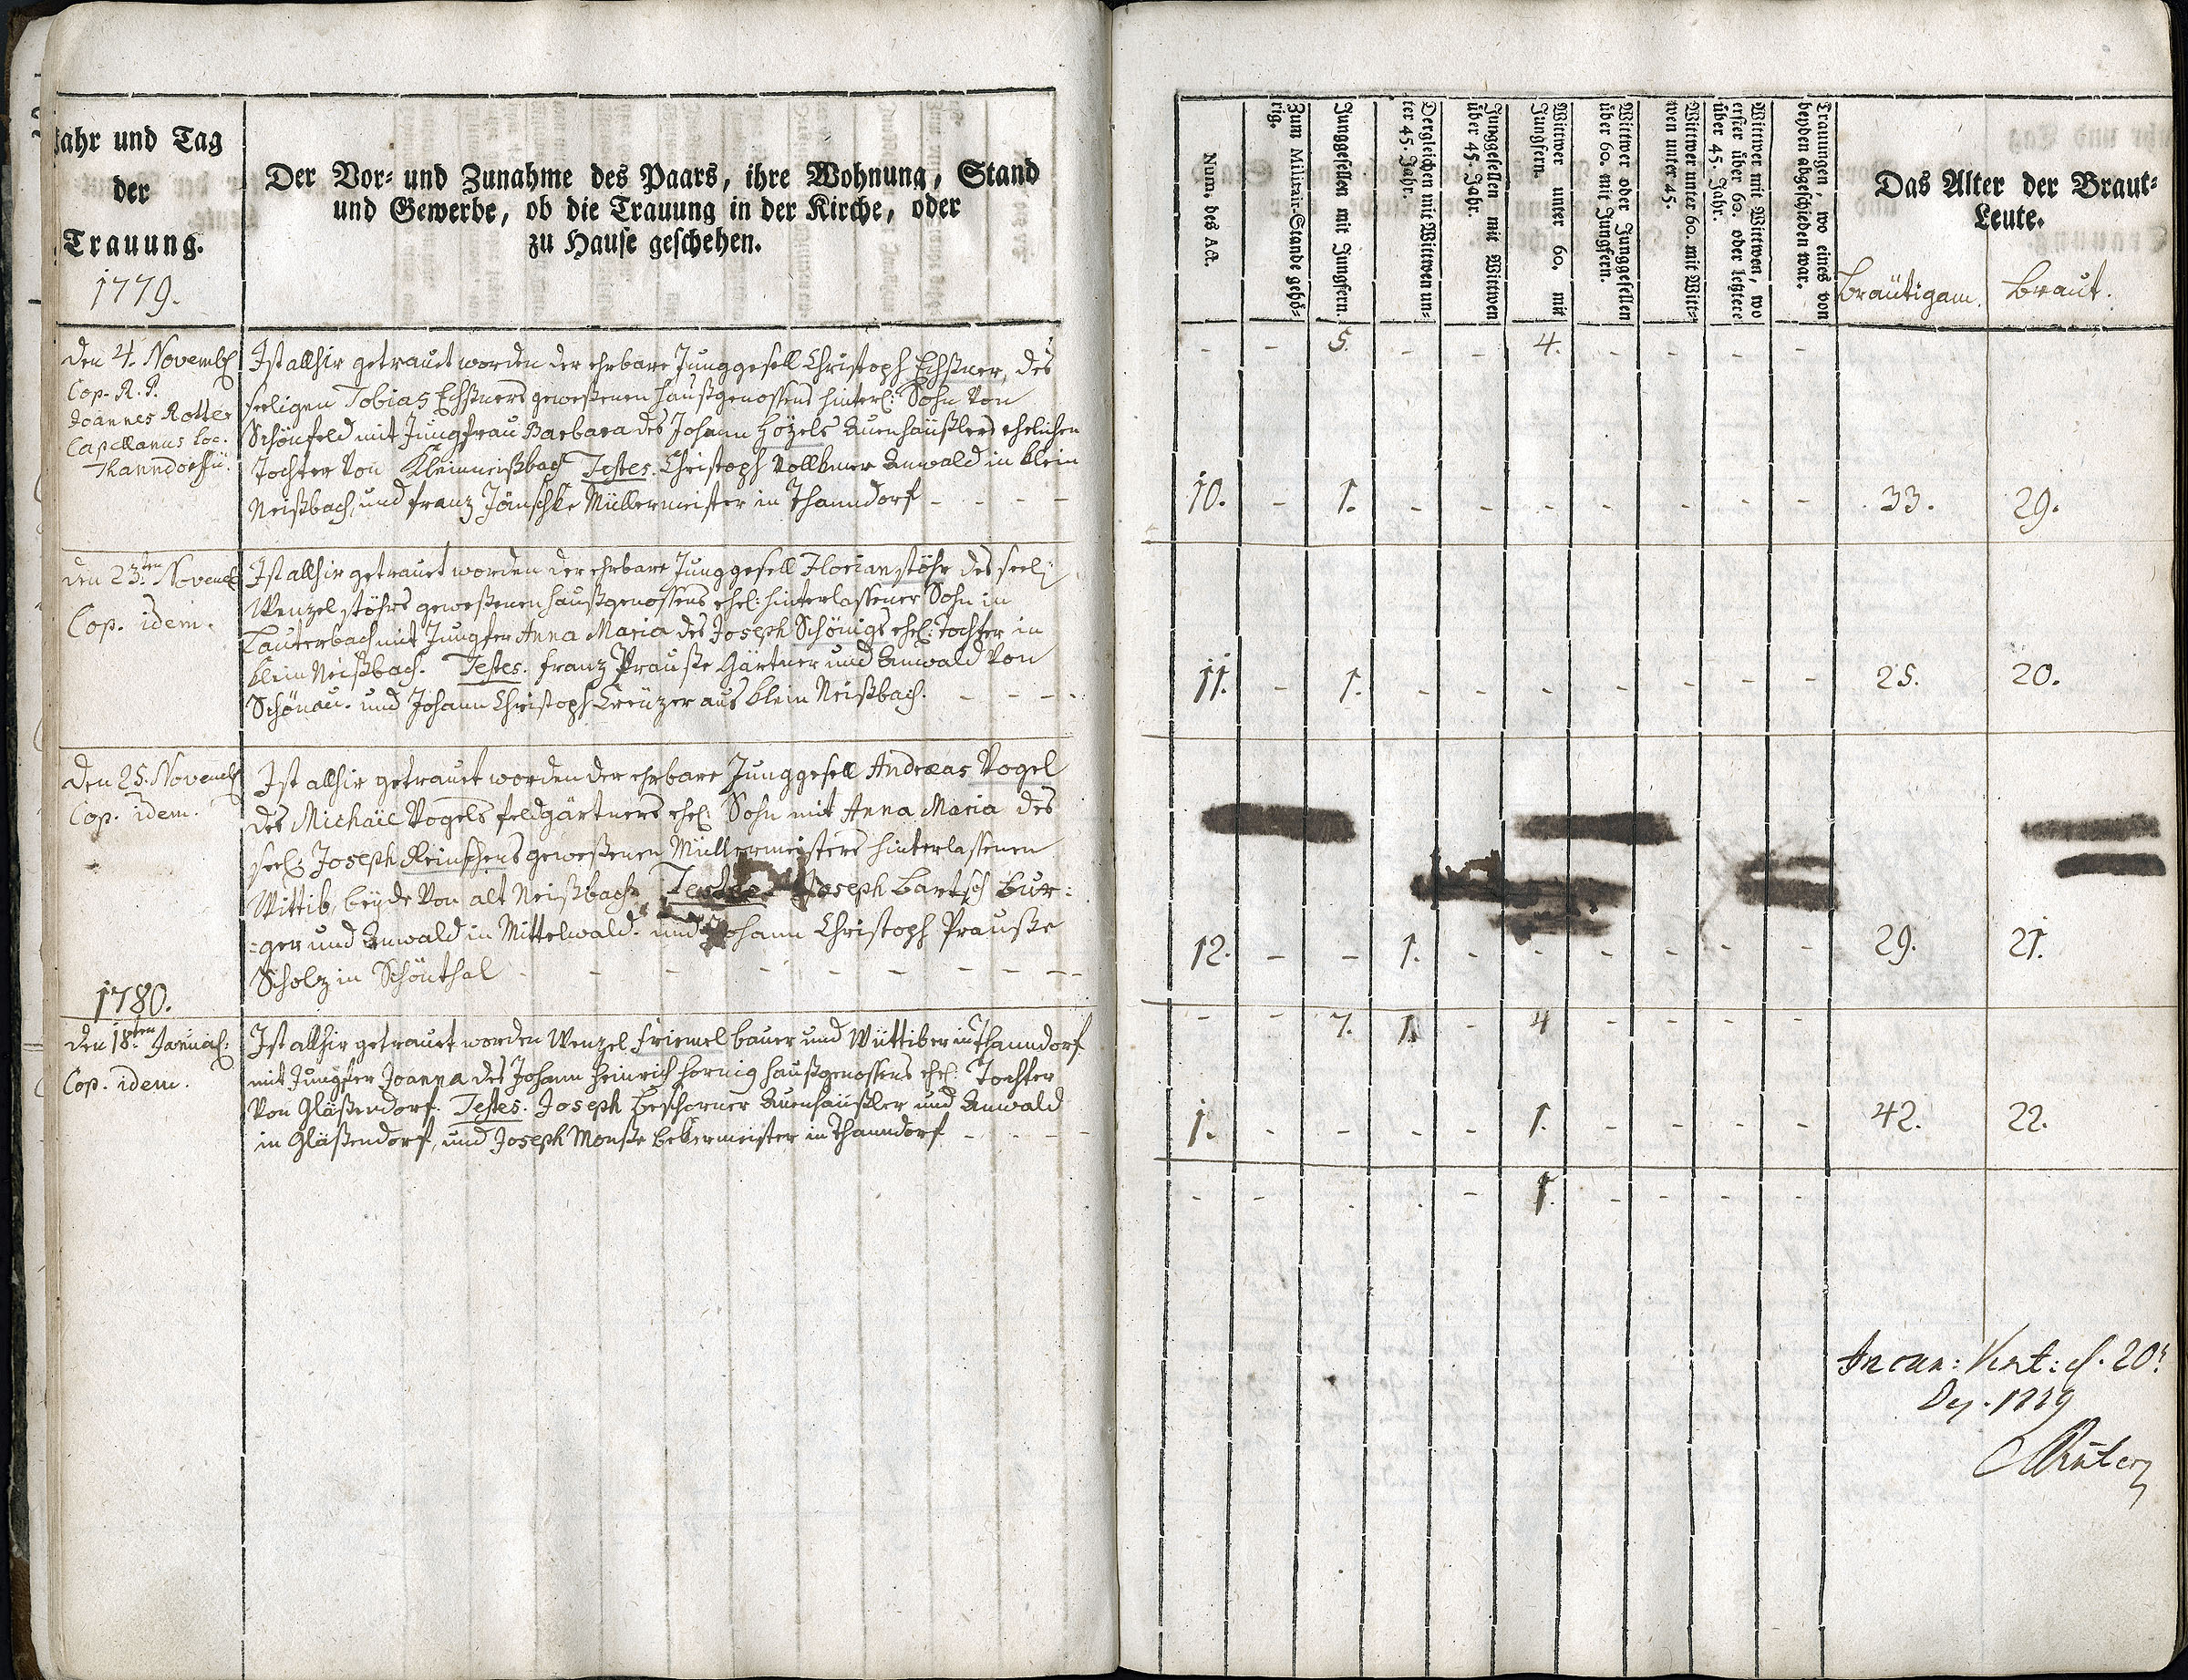 Jahr und Tag
der
Trauung.
1779.
Der Vor- und Zunahme des Paars, ihre Wohnung, Stand
und Gewerbe, ob die Trauung in der Kirche, oder
zu Hause geschehen.
den 4. Novemb
Cop. R. P.
Joannes Rotter
Capellanus loc.
Thanndorffii.
Ist allhir getraut worden der ehrbare Junggesell Christoph Echßner, des
seeligen Tobias Echßners geweßenen haußgenossens hinterl: Sohn von
Schönfeld mit Jungfrau Barbara des Johann Hözels Auenhäußlers ehelichen
Tochter von Kleinneißbach Testes. Christoph Vollkmer Anwald in klein
Neißbach, und franz Jänschke Müllermeister in Thanndorf - - - -
den 23.ten Novemb
Cop. idem.
Ist allhir getrauet worden der ehrbare Junggesell Florian stöhr des seel:
Wenzel stöhrs geweßenen haußgenossens ehel: hinterlassener Sohn in
Lauterbach mit Jungfer Anna Maria des Joseph Schönigs ehel: tochter in
klein Neißbach. Testes. franz Prauße Gärtner und Anwald von
Schönau. und Johann Christoph Creüzer aus klein Neißbach. - - - -
den 25. Novemb
Cop. idem.
Ist allhir getrauet worden der ehrbare Junggesell Andreas Vogel
des Michäel Vogels feldgärtners ehel: Sohn mit Anna Maria des
seel: Joseph Reinschens geweßenen Müllermeisters hinterlassenen
Wittib, beyde von alt Neißbach. Testes. Joseph Bartsch Bur:
=ger und Anwald in Mittelwald. und Johann Christoph Prauße
Scholz in Schönthal - - - - - - - - -
1780.
den 18.ten Januar:
Cop. idem.
Ist allhir getrauet worden Wenzel Friemel bauer und Wüttiber in Thanndorf
mit Jungfer Joanna des Johann Heinrich hornig haußgenossens ehel: Tochter
von Gläßendorf. Testes. Joseph Beschorner Auenhäußler und Anwald
in Gläßendorf, und Joseph Monße Bekermeister in Thanndorf - - - -
Num. des Act.
Zum Militair-Stande gehö-
rig.
Junggesellen mit Jungfern.
Dergleichen mit Wittwen un-
ter 45. Jahr.
Junggesellen mit Wittwen
über 45. Jahr.
Wittwer unter 60. mit
Jungfern.
Wittwer oder Junggesellen
über 60. mit Jungfern.
Wittwer unter 60. mit Witt-
wen unter 45.
Wittwer mit Wittwen, wo
erster über 60. oder letztere
über 45. Jahr.
Trauungen, wo eines von
beyden abgeschieden war.
Das Alter der Braut-
Leute.
Bräutigam. Braut.
- - 5. - - 4. - - - -
10. - 1. - - - - - - - 33. 29.
11. - 1. - - - - - - - 25. 20.
12. - - 1. - - - - - - 29. 21.
- - 7. 1. - 4 - - - -
1. - - - - 1. - - - - 42. 22.
- - . . - 1. - - - -